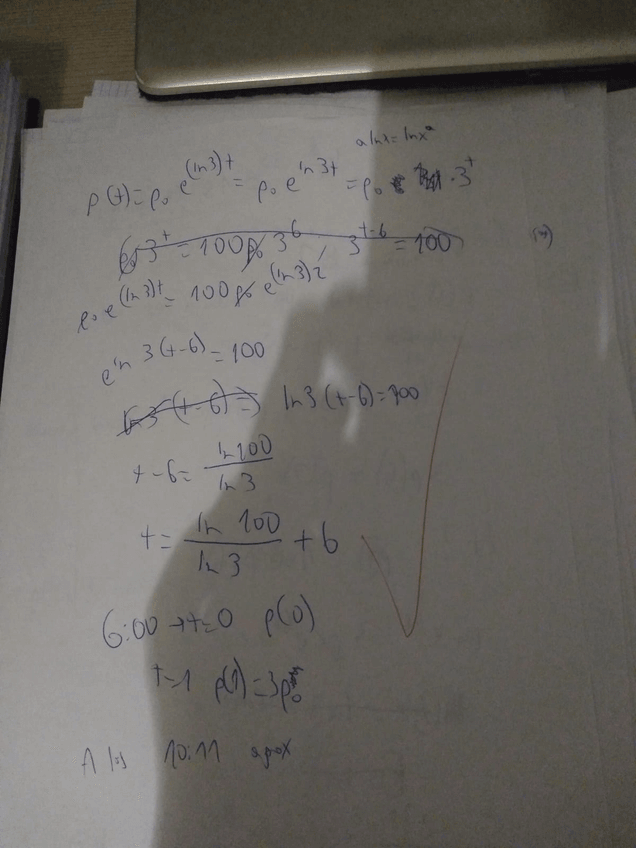 a ln x = ln xᵃ
p(t) = p₀ e^(ln 3)t = p₀ e^ln 3t = p₀ · 3^t
3^t = 100 p₀ 3^6 3^t-6 = 100
p₀ e^(ln 3)t = 100 p₀ e^(ln 3)
e^ln 3(t-6) = 100
ln 3 (t-6) =) ln 3 (t-6) = 100
t-6 = ln 100 / ln 3
t = ln 100 / ln 3 + 6
6:00 → t=0 p(0)
t=1 p(1) = 3p₀
A las 10:11 apox